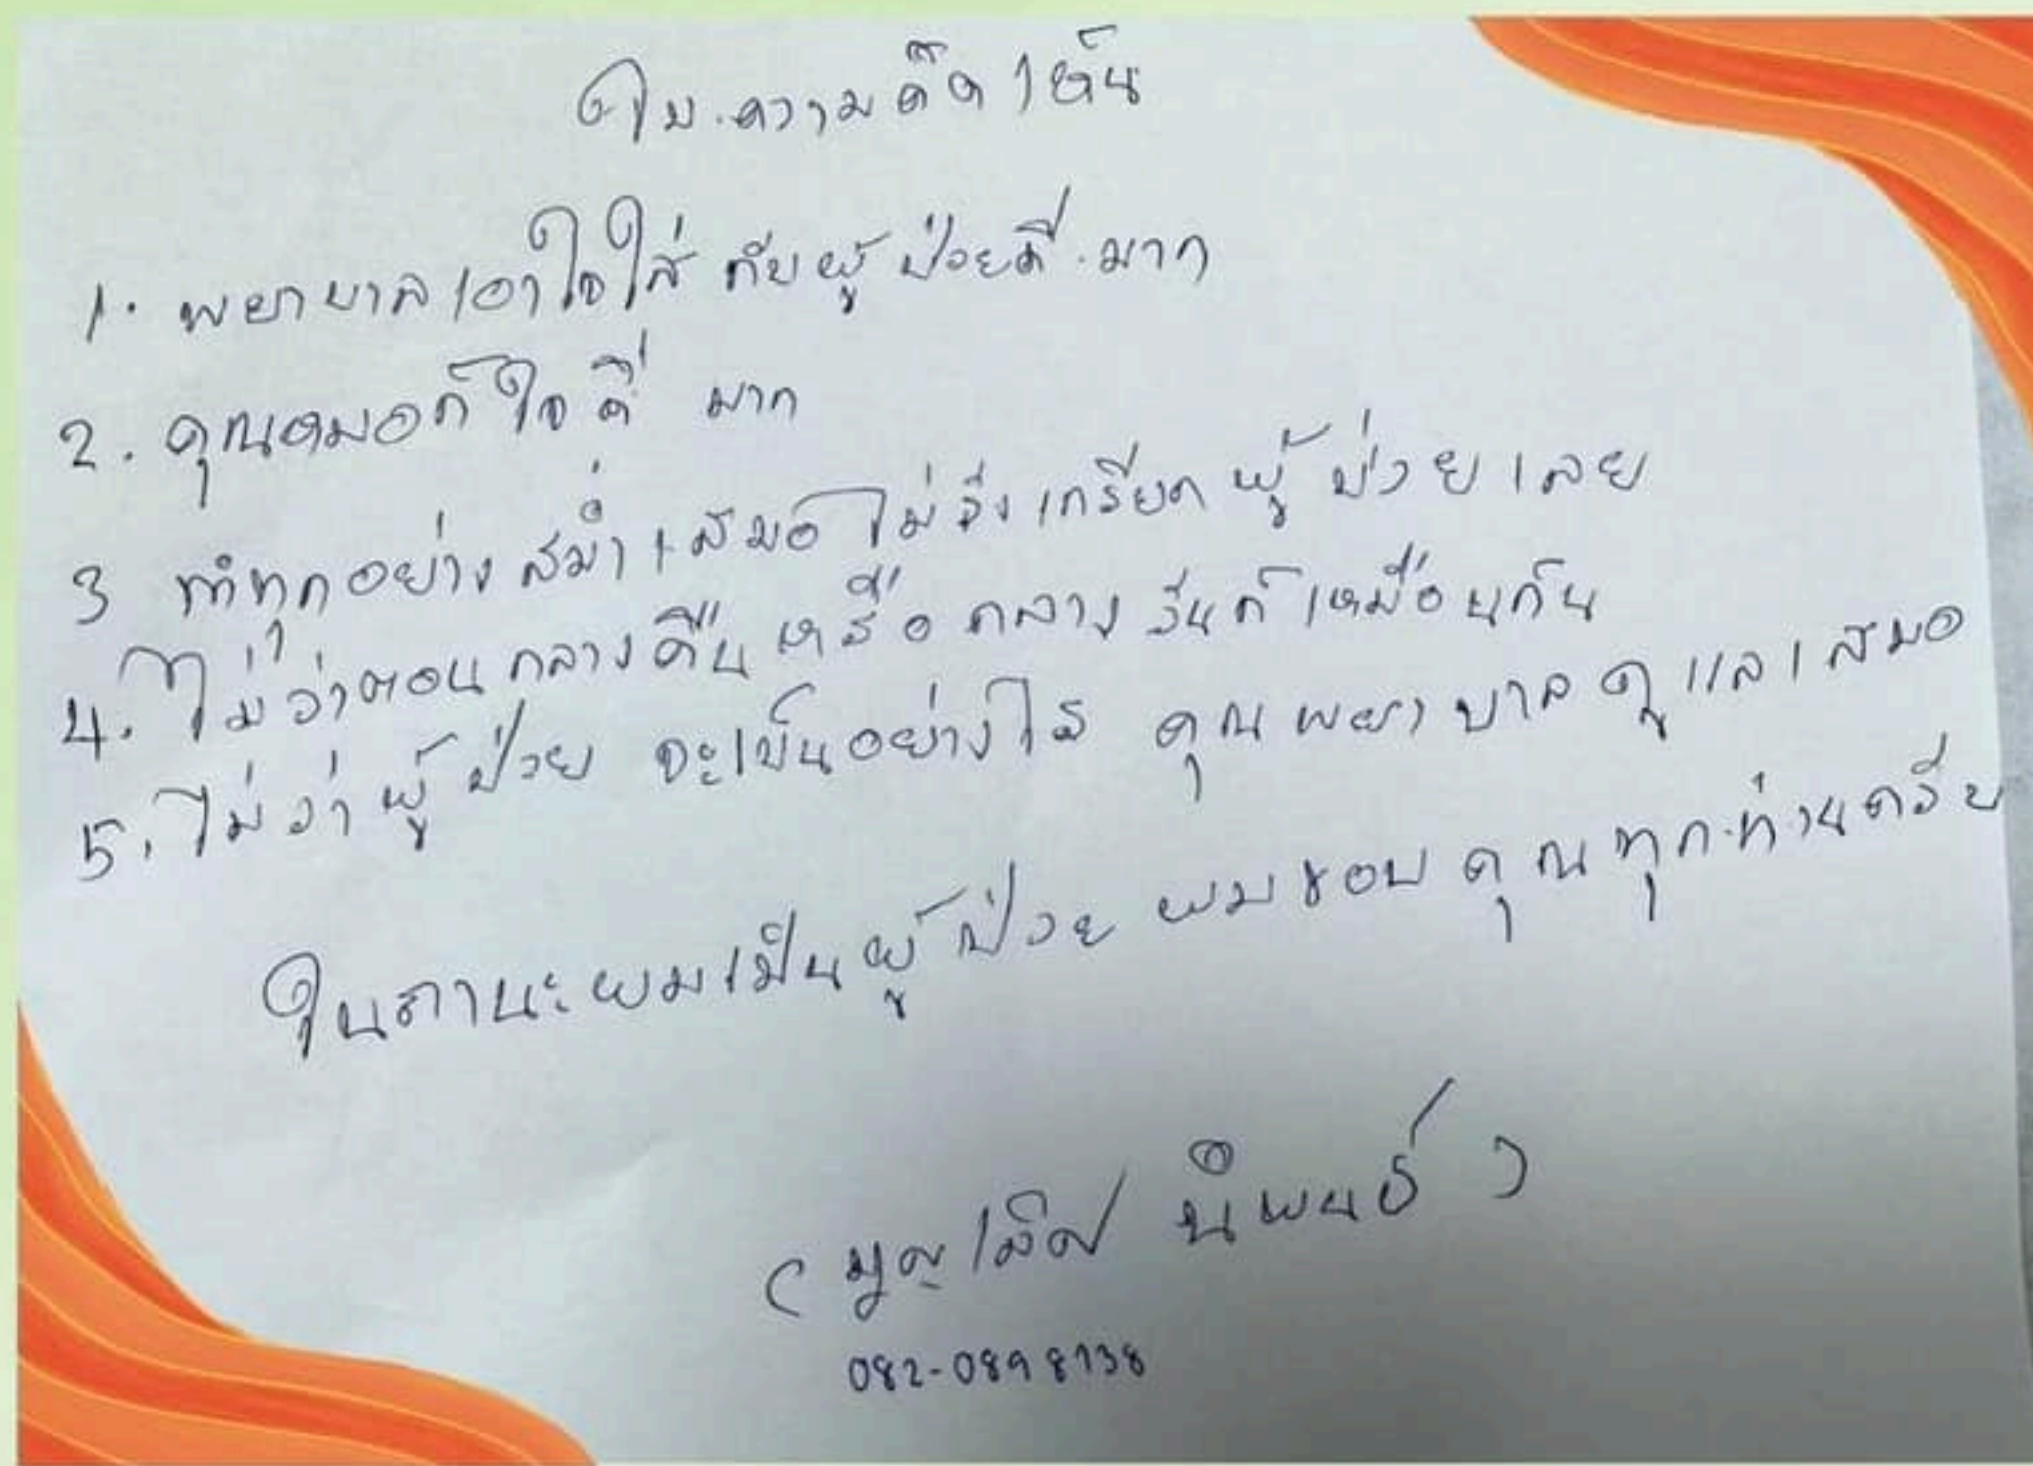 ใบ.ความคิดเห็น
1. พยาบาลเอาใจใส่ กับผู้ป่วยดี.มาก
2. คุณหมอก็ใจดี มาก
3 ทำทุกอย่างสม่ำเสมอไม่รังเกรียดผู้ป่วยเลย
4. ไม่ว่าตอนกลางคืนหรือกลางวันก็เหมือนกัน
5. ไม่ว่าผู้ป่วย จะเป็นอย่างไร คุณพยาบาลดูแลเสมอ
ในถานะผมเป็นผู้ป่วย ผมขอบคุณทุก.ท่านครับ
( นิพนธ์ )
082-0898738